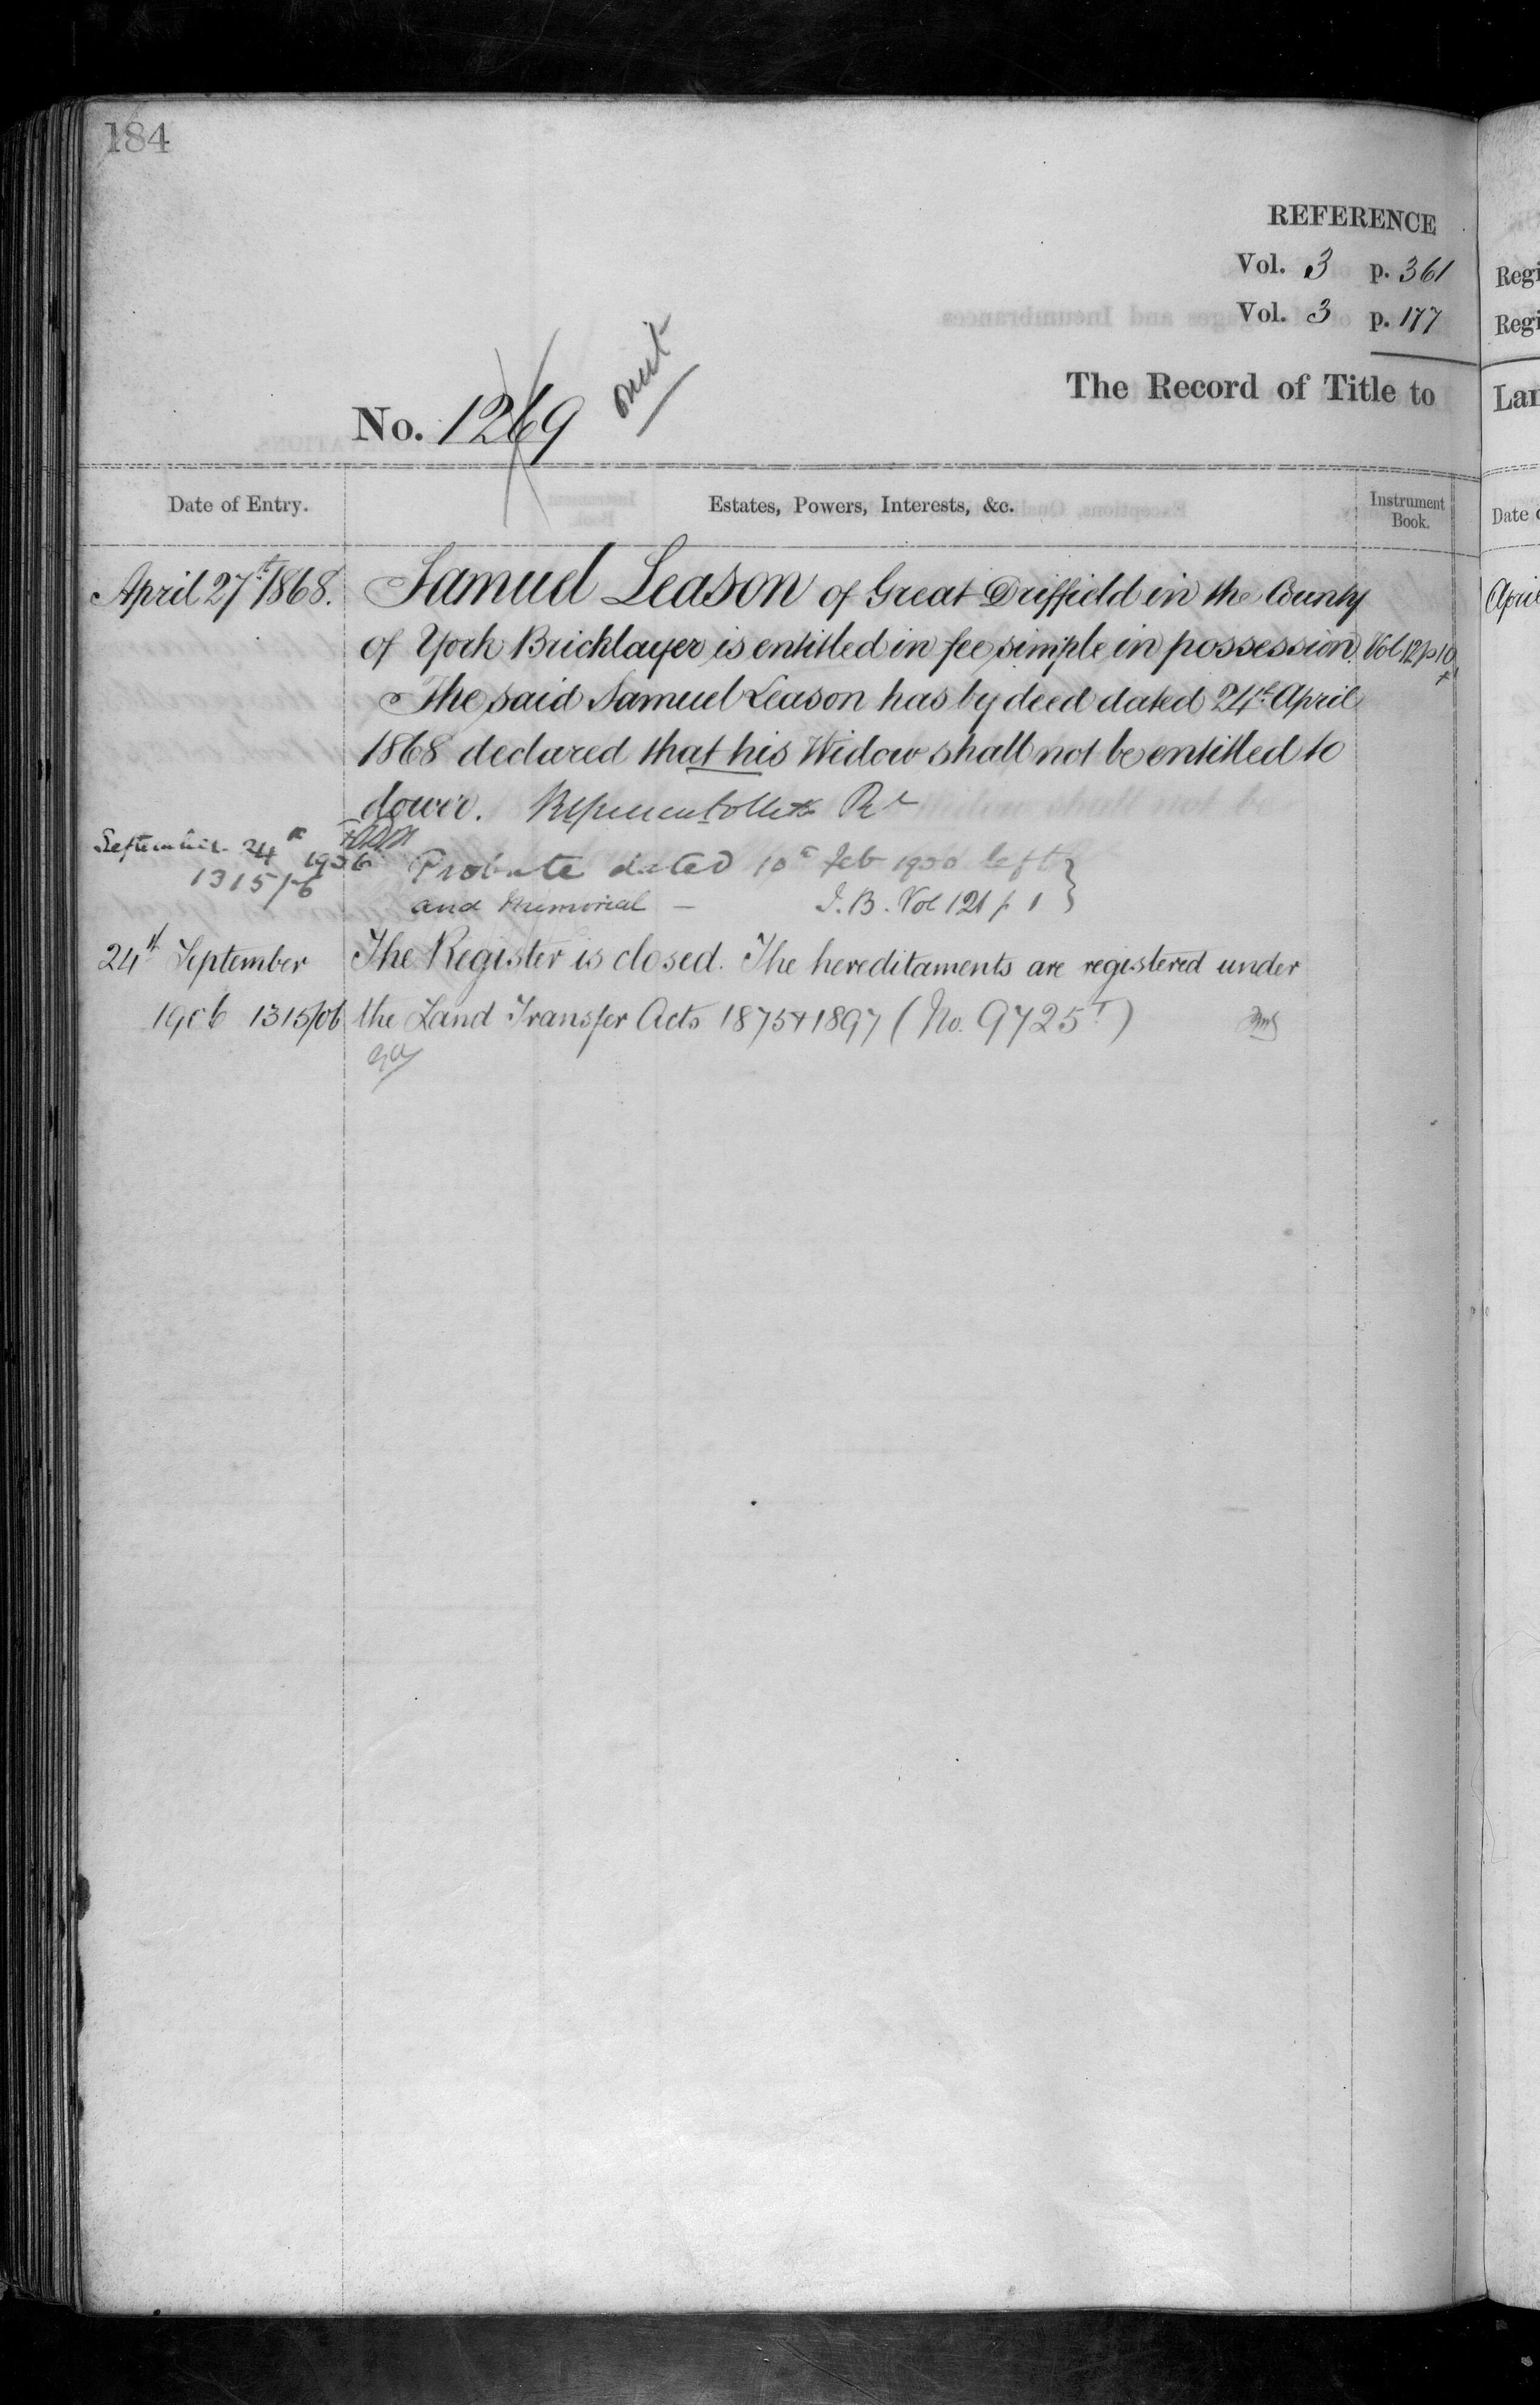 184
REFERENCE
Vol. 3 p. 361
Vol. 3 p. 177
The Record of Title to
No. 1269 omit
Date of Entry.
Estates, Powers, Interests, &c.
Instrument
Book.
April 27th 1868.
Samuel Leason of Great Driffield in the County
of York Bricklayer is entitled in fee simple in possession. Vol 12 p 10
The said Samuel Leason has by deed dated 24th April
1868 declared that his Widow shall not be entitled to
dower.
September 24th 1906
1315/6
Probate dated 10th Feb 1900 left
and Memorial — I.B. Vol 121 p 1
24th September
1906 1315/06
The Register is closed. The hereditaments are registered under
the Land Transfer Acts 1875 & 1897 (No. 9725T)
Regi
Regi
Lan
Date o
April